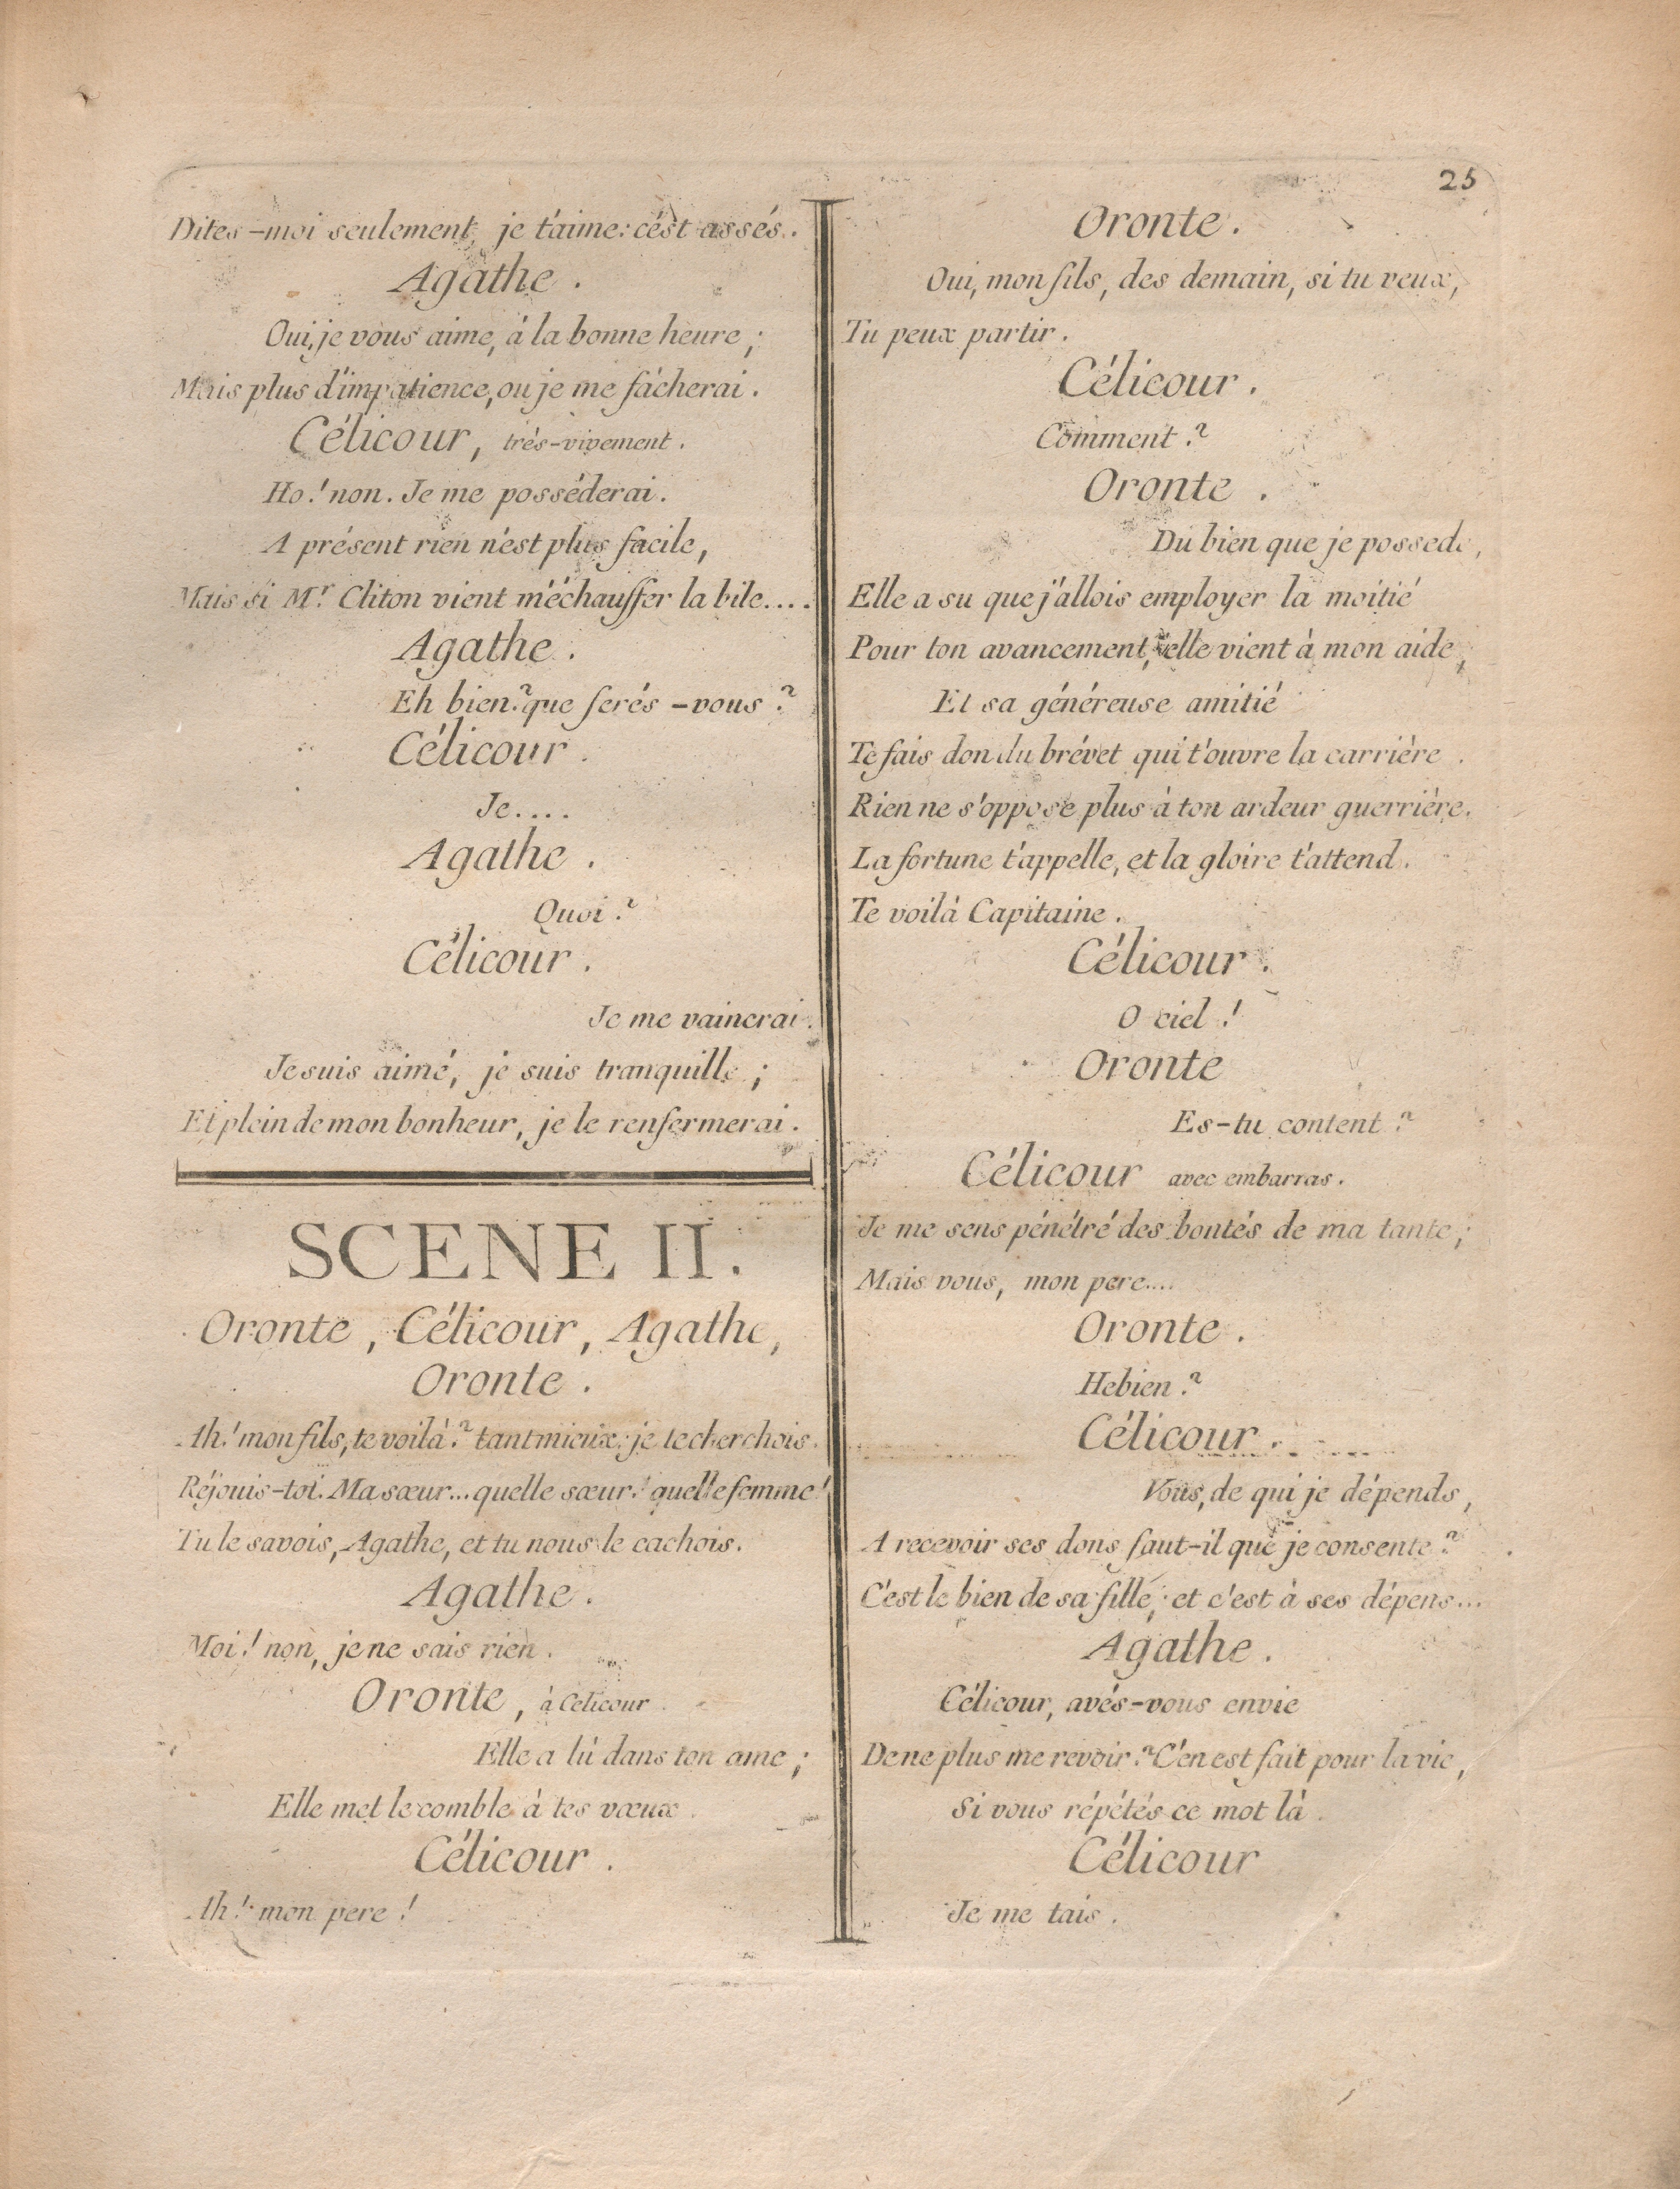 25
Dites-moi seulement, je t'aime: c'ést assés.
Agathe.
Oui, je vous aime, à la bonne heure;
Mais plus d'impatience, ou je me fâcherai.
Célicour, trés-vivement.
Ho! non. Je me posséderai.
A présent rien n'est plus facile,
Mais si Mr. Cliton vient m'échauffer la bile....
Agathe.
Eh bien? que ferés-vous?
Célicour.
Je....
Agathe.
Quoi?
Célicour.
Je me vaincrai.
Je suis aimé, je suis tranquille;
Et plein de mon bonheur, je le renfermerai.
SCENE II.
Oronte, Célicour, Agathe,
Oronte.
Ah! mon fils, te voilà? tant mieux; je te cherchois.
Réjouis-toi. Ma sœur... quelle sœur! quelle femme!
Tu le savois, Agathe, et tu nous le cachois.
Agathe.
Moi! non, je ne sais rien.
Oronte, à Celicour.
Elle a lû dans ton ame;
Elle met le comble à tes vœux.
Célicour.
Ah! mon pere!
Oronte.
Oui, mon fils, des demain, si tu veux,
Tu peux partir.
Célicour.
Comment?
Oronte.
Du bien que je possede,
Elle a su que j'allois employer la moitié
Pour ton avancement, elle vient à mon aide,
Et sa généreuse amitié
Te fais don du brévet qui t'ouvre la carrière.
Rien ne s'oppose plus à ton ardeur guerrière.
La fortune t'appelle, et la gloire t'attend.
Te voilà Capitaine.
Célicour.
O ciel!
Oronte
Es-tu content?
Célicour avec embarras.
Je me sens pénétré des bontés de ma tante;
Mais vous, mon pere....
Oronte.
Hebien?
Célicour.
Vous, de qui je dépends,
A recevoir ses dons faut-il que je consente?
C'est le bien de sa fille; et c'est à ses dépens...
Agathe.
Célicour, avés-vous envie
De ne plus me revoir? C'en est fait pour la vie,
Si vous répétés ce mot là.
Célicour
Je me tais.